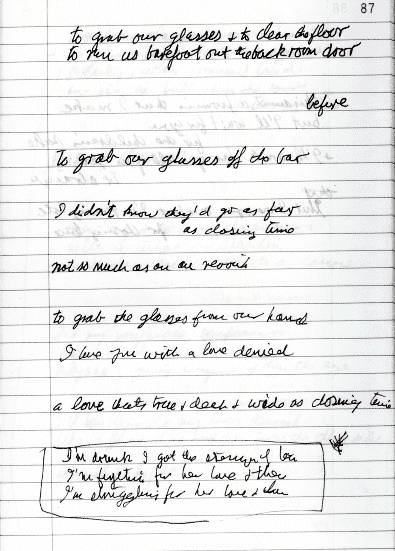 87
to grab our glasses & to clear the floor
to run us barefoot out the back room door
before
to grab our glasses off the bar
I didn't know they'd go as far
as closing time
not so much as an au revoir
to grab the glasses from our hands
I love you with a love denied
a love that's true & dead & wide as closing time
I'm drunk I got the of
I'm fighting for her love & then
I'm struggling for her love & then